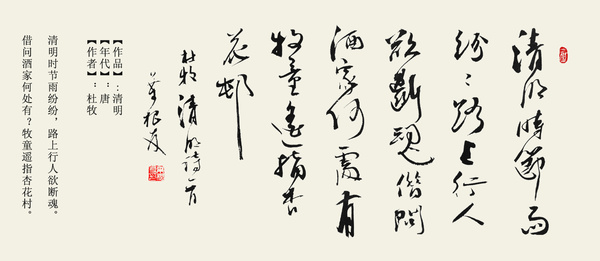 清明時節雨
紛〻路上行人
欲斷魂借問
酒家何處有
牧童遙指杏
花邨
杜牧清明詩一首
【作品】：清明
【年代】：唐
【作者】：杜牧
清明时节雨纷纷，路上行人欲断魂。
借问酒家何处有？牧童遥指杏花村。